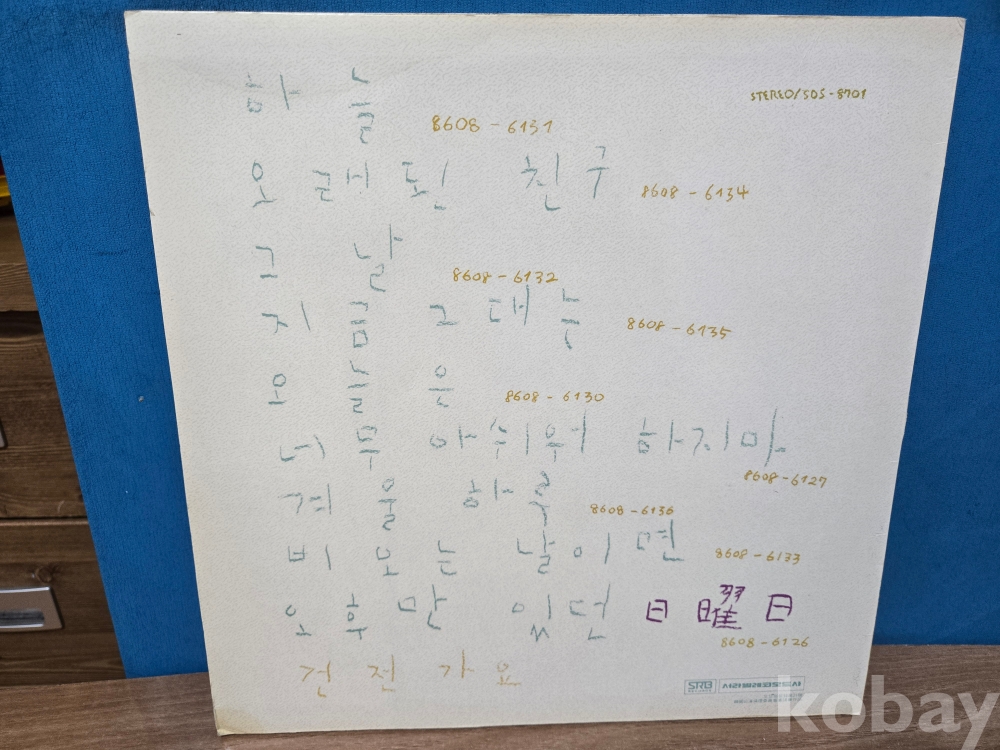 STEREO/SDS-8701
하늘
8608-6131
오래된 친구
8608-6134
그날
8608-6132
지금 그대는
8608-6135
오늘은
8608-6130
너무 아쉬워 하지마
8608-6127
겨울 하루
8608-6136
비오는 날이면
8608-6133
오후만 있던 日曜日
8608-6126
건전가요
SRB
kobay